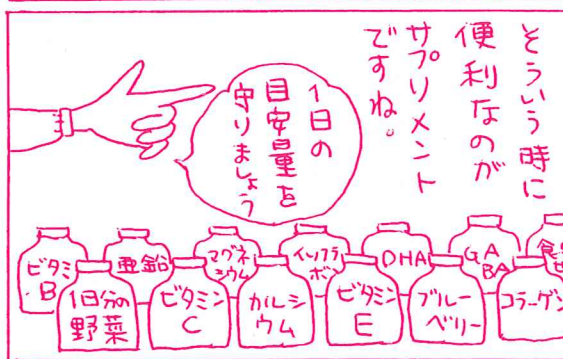 そういう時に
便利なのが
サプリメント
ですね。
1日の
目安量を
守りましょう
ビタミ
B
亜鉛
マグネ
シウム
イソフラ
ボ
DHA
GA
BA
食
1日分の
野菜
ビタミン
C
カルシ
ウム
ビタミン
E
ブルー
ベリー
コラーゲン